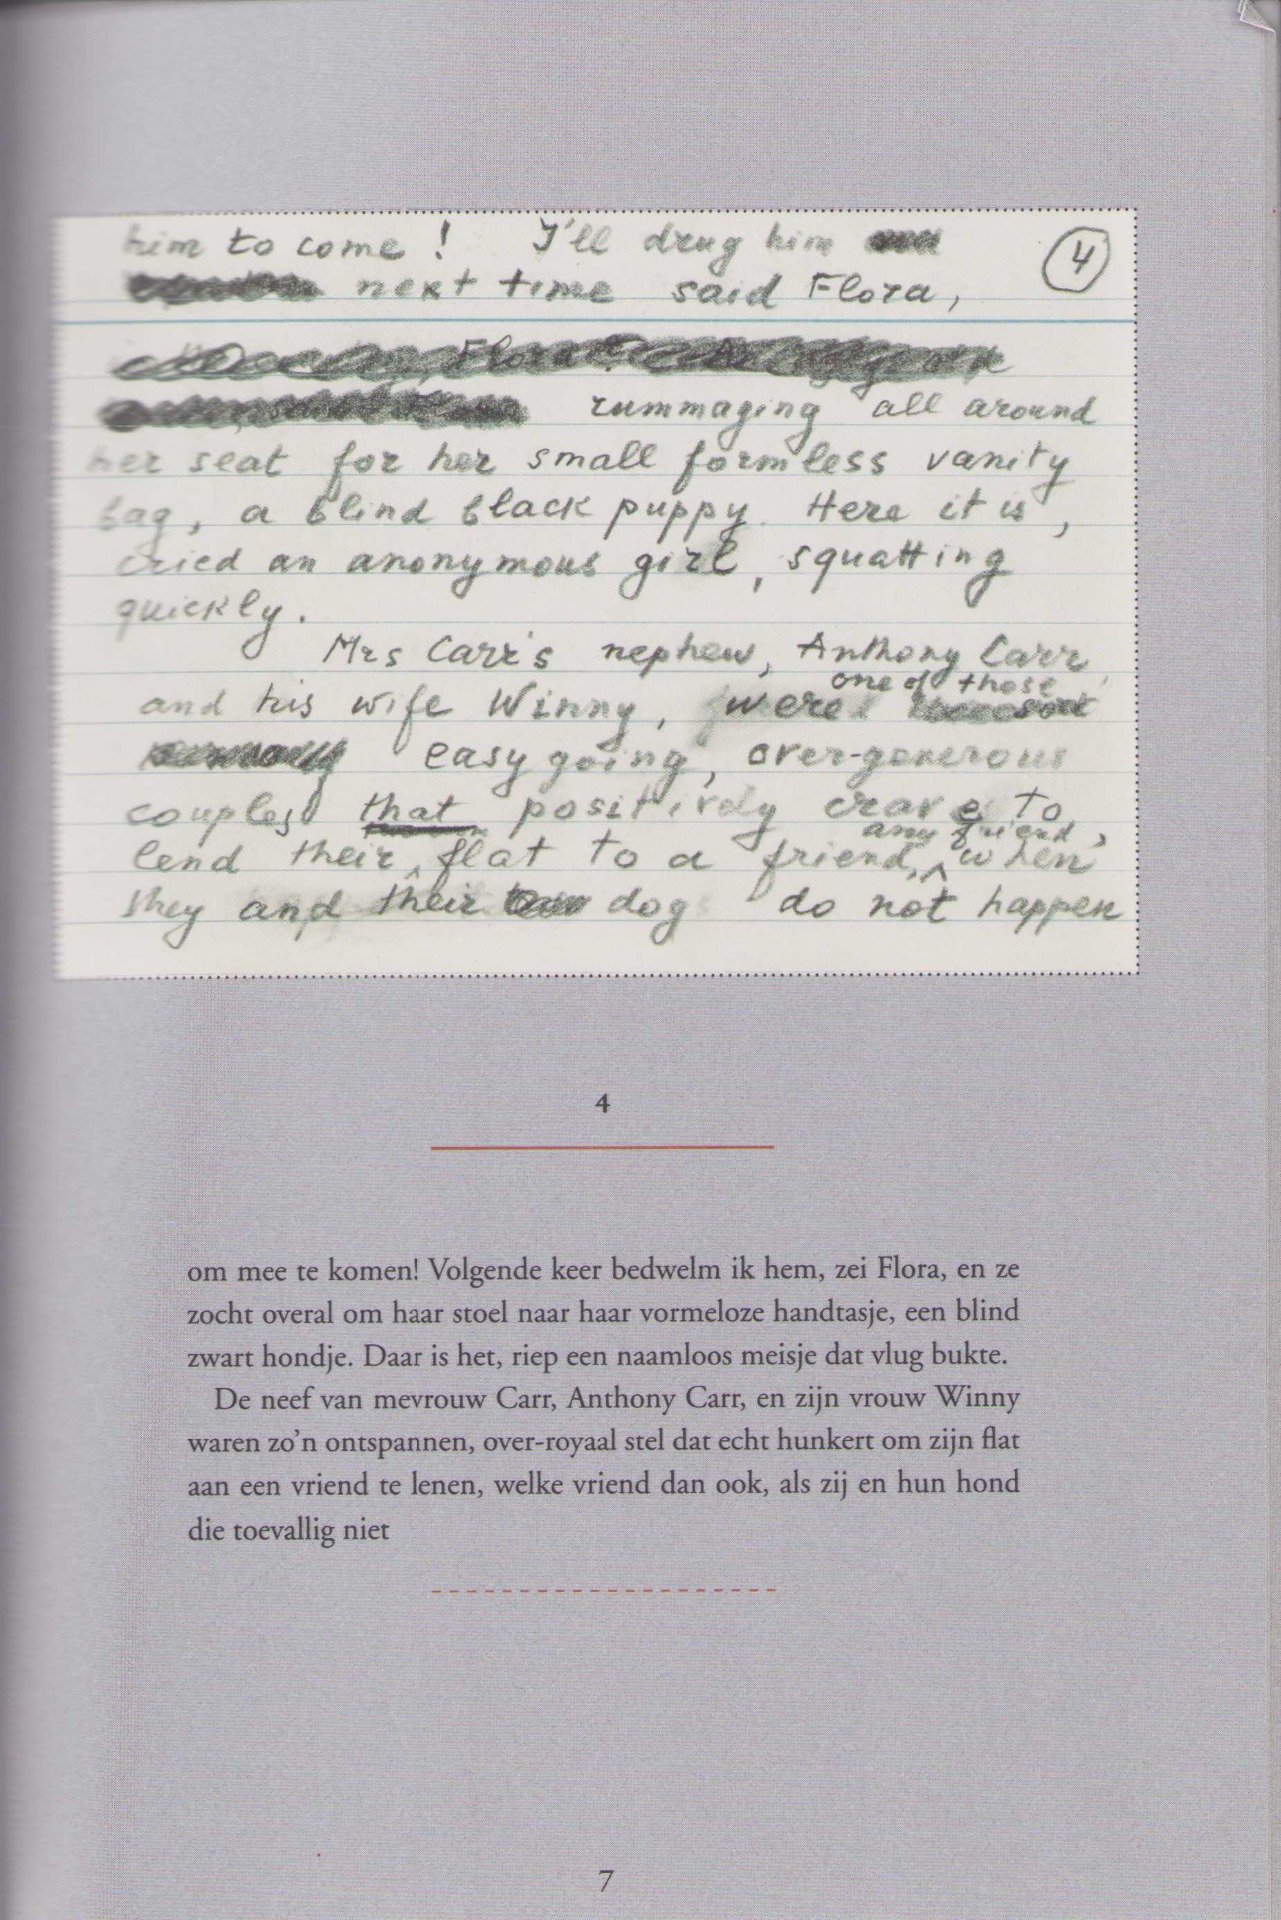 him to come! I'll drug him
4
next time said Flora,
rummaging all around
her seat for her small formless vanity
bag, a blind black puppy. Here it is,
cried an anonymous girl, squatting
quickly.
Mrs Carr's nephew, Anthony Carr
one of those
and his wife Winny, were
easygoing, over-generous
couples that positively crave to
any friend,
lend their flat to a friend, when
they and their dog do not happen
4
om mee te komen! Volgende keer bedwelm ik hem, zei Flora, en ze
zocht overal om haar stoel naar haar vormeloze handtasje, een blind
zwart hondje. Daar is het, riep een naamloos meisje dat vlug bukte.
De neef van mevrouw Carr, Anthony Carr, en zijn vrouw Winny
waren zo'n ontspannen, over-royaal stel dat echt hunkert om zijn flat
aan een vriend te lenen, welke vriend dan ook, als zij en hun hond
die toevallig niet
7